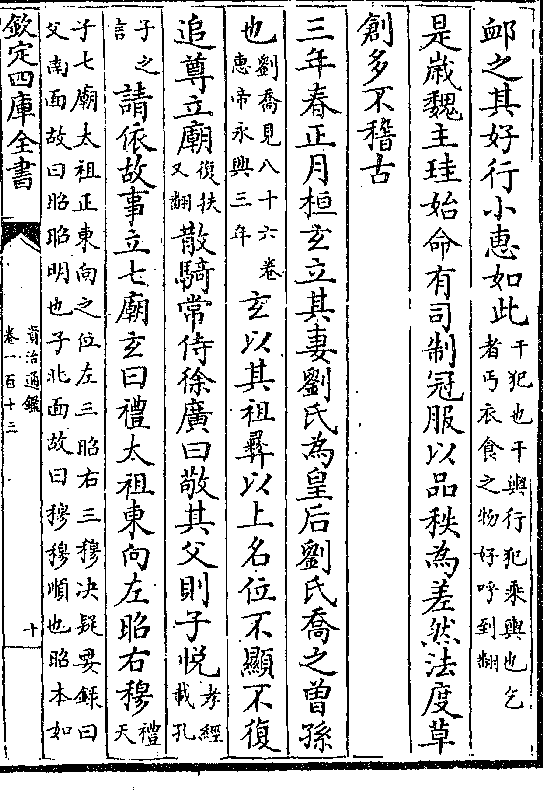 䘏之其好行小惠如此干犯也干輿行犯乗輿也乞者丐衣食之物好呼到翻
是嵗魏主珪始命有司制冠服以品秩為差然法度草
創多不稽古
三年春正月桓玄立其妻劉氏為皇后劉氏喬之曽孫
也劉喬見八十六卷惠帝永興三年玄以其祖彞以上名位不顯不復
追尊立廟復扶又翻散騎常侍徐廣曰敬其父則子悦孝經載孔
子之言請依故事立七廟玄曰禮太祖東向左昭右穆禮天
子七廟太祖正東向之位左三昭右三穆决疑要録曰
父南面故曰昭昭明也子北面故曰穆穆順也昭本如
欽定四庫全書
資治通鑑
卷一百十三
十